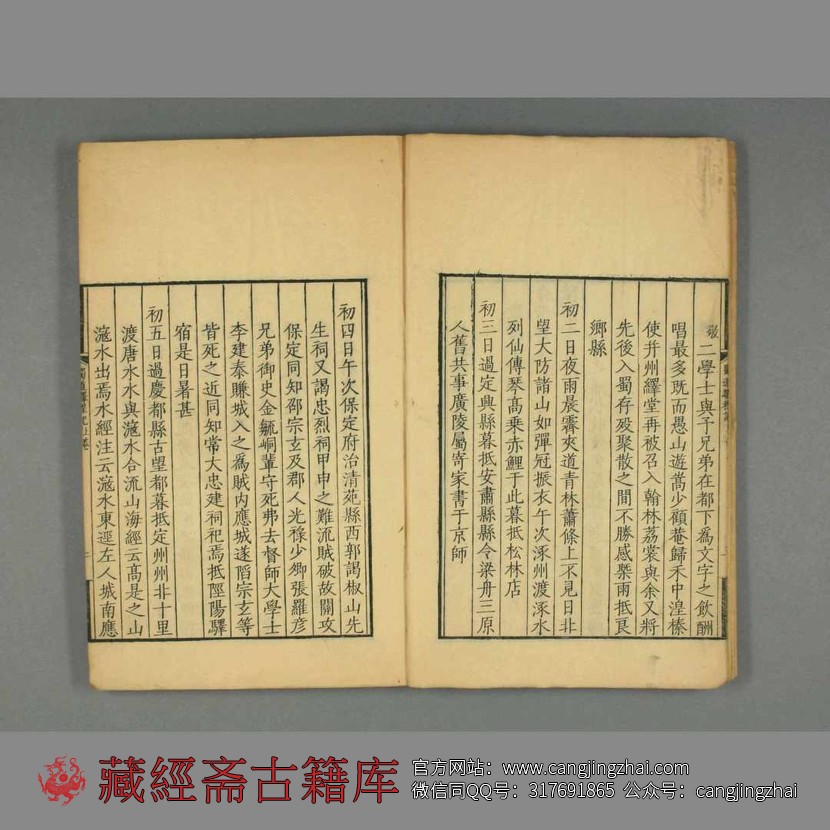 敬二學士與予兄弟在都下爲文字之飲酬
唱最多旣而愚山遊嵩少顧菴歸禾中湟榛
使并州繹堂再被召入翰林荔裳與余又將
先後入蜀存殁聚散之間不勝感槩雨抵良
鄉縣
初二日夜雨晨霽夾道青林蕭條上不見日非
望大防諸山如彈冠振衣午次涿州渡涿水
列仙傳琴高乗赤鯉于此暮抵松林店
初三日過定興縣暮抵安肅縣縣令梁舟三原
人舊共事廣陵屬寄家書于京師
初四日午次保定府治清苑縣西郭謁椒山先
生祠又謁忠烈祠甲申之難流賊破故關攻
保定同知邵宗玄及郡人光祿少卿張羅彦
兄弟御史金毓峒輩守死弗去督師大學士
李建泰賺城入之爲賊内應城遂䧟宗玄等
皆死之近同知常大忠建祠祀焉抵陘陽驛
宿是日暑甚
初五日過慶都縣古望都暮抵定州州非十里
渡唐水水與滱水合流山海經云髙是之山
滱水出焉水經注云滱水東逕左人城南應
藏經斋古籍库
官方网站：www.cangjingzhai.com
微信同QQ号：317691865 公众号：cangjingzhai